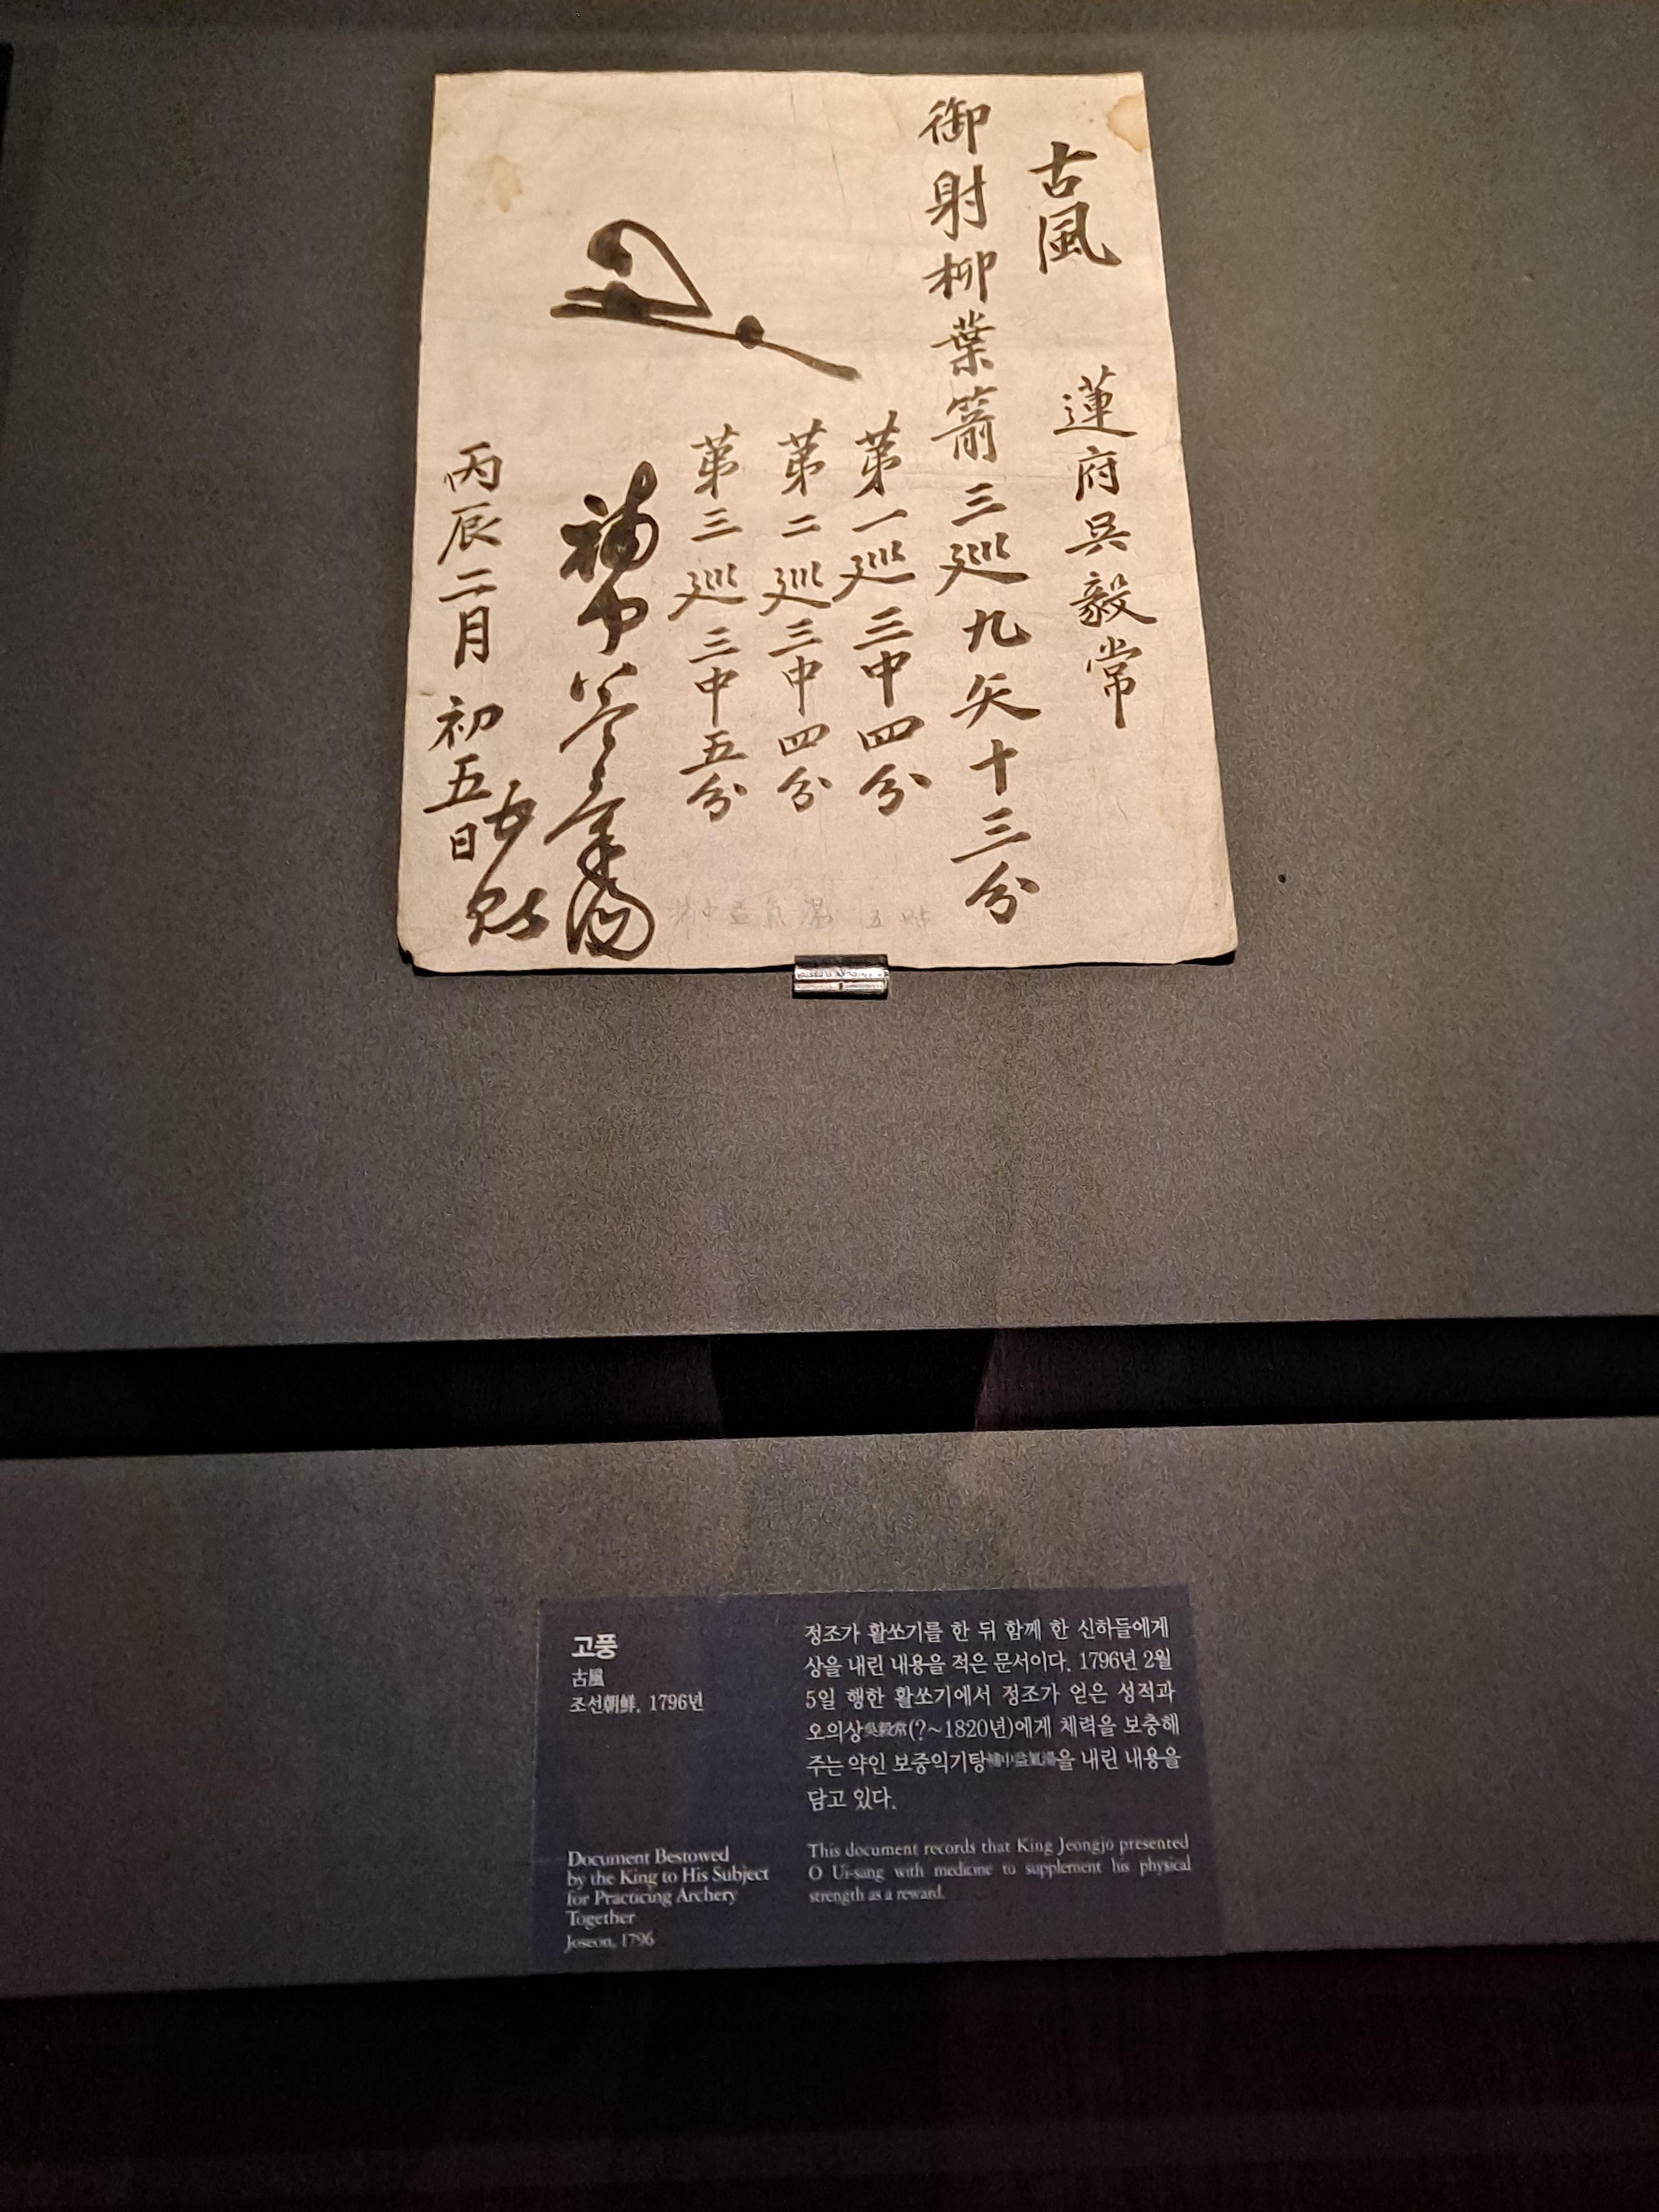 古風 蓮府吳毅常
御射柳葉箭三巡九矢十三分
第一巡三中四分
第二巡三中四分
第三巡三中五分
補中益氣湯
五貼
丙辰二月初五日
補中益氣湯 五貼
고풍
古風
조선朝鮮, 1796년
정조가 활쏘기를 한 뒤 함께 한 신하들에게
상을 내린 내용을 적은 문서이다. 1796년 2월
5일 행한 활쏘기에서 정조가 얻은 성적과
오의상吳毅常(?~1820년)에게 체력을 보충해
주는 약인 보중익기탕補中益氣湯을 내린 내용을
담고 있다.
Document Bestowed
by the King to His Subject
for Practicing Archery
Together
Joseon, 1796
This document records that King Jeongjo presented
O Ui-sang with medicine to supplement his physical
strength as a reward.